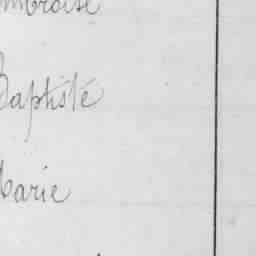 mbroise
Baptiste
Marie